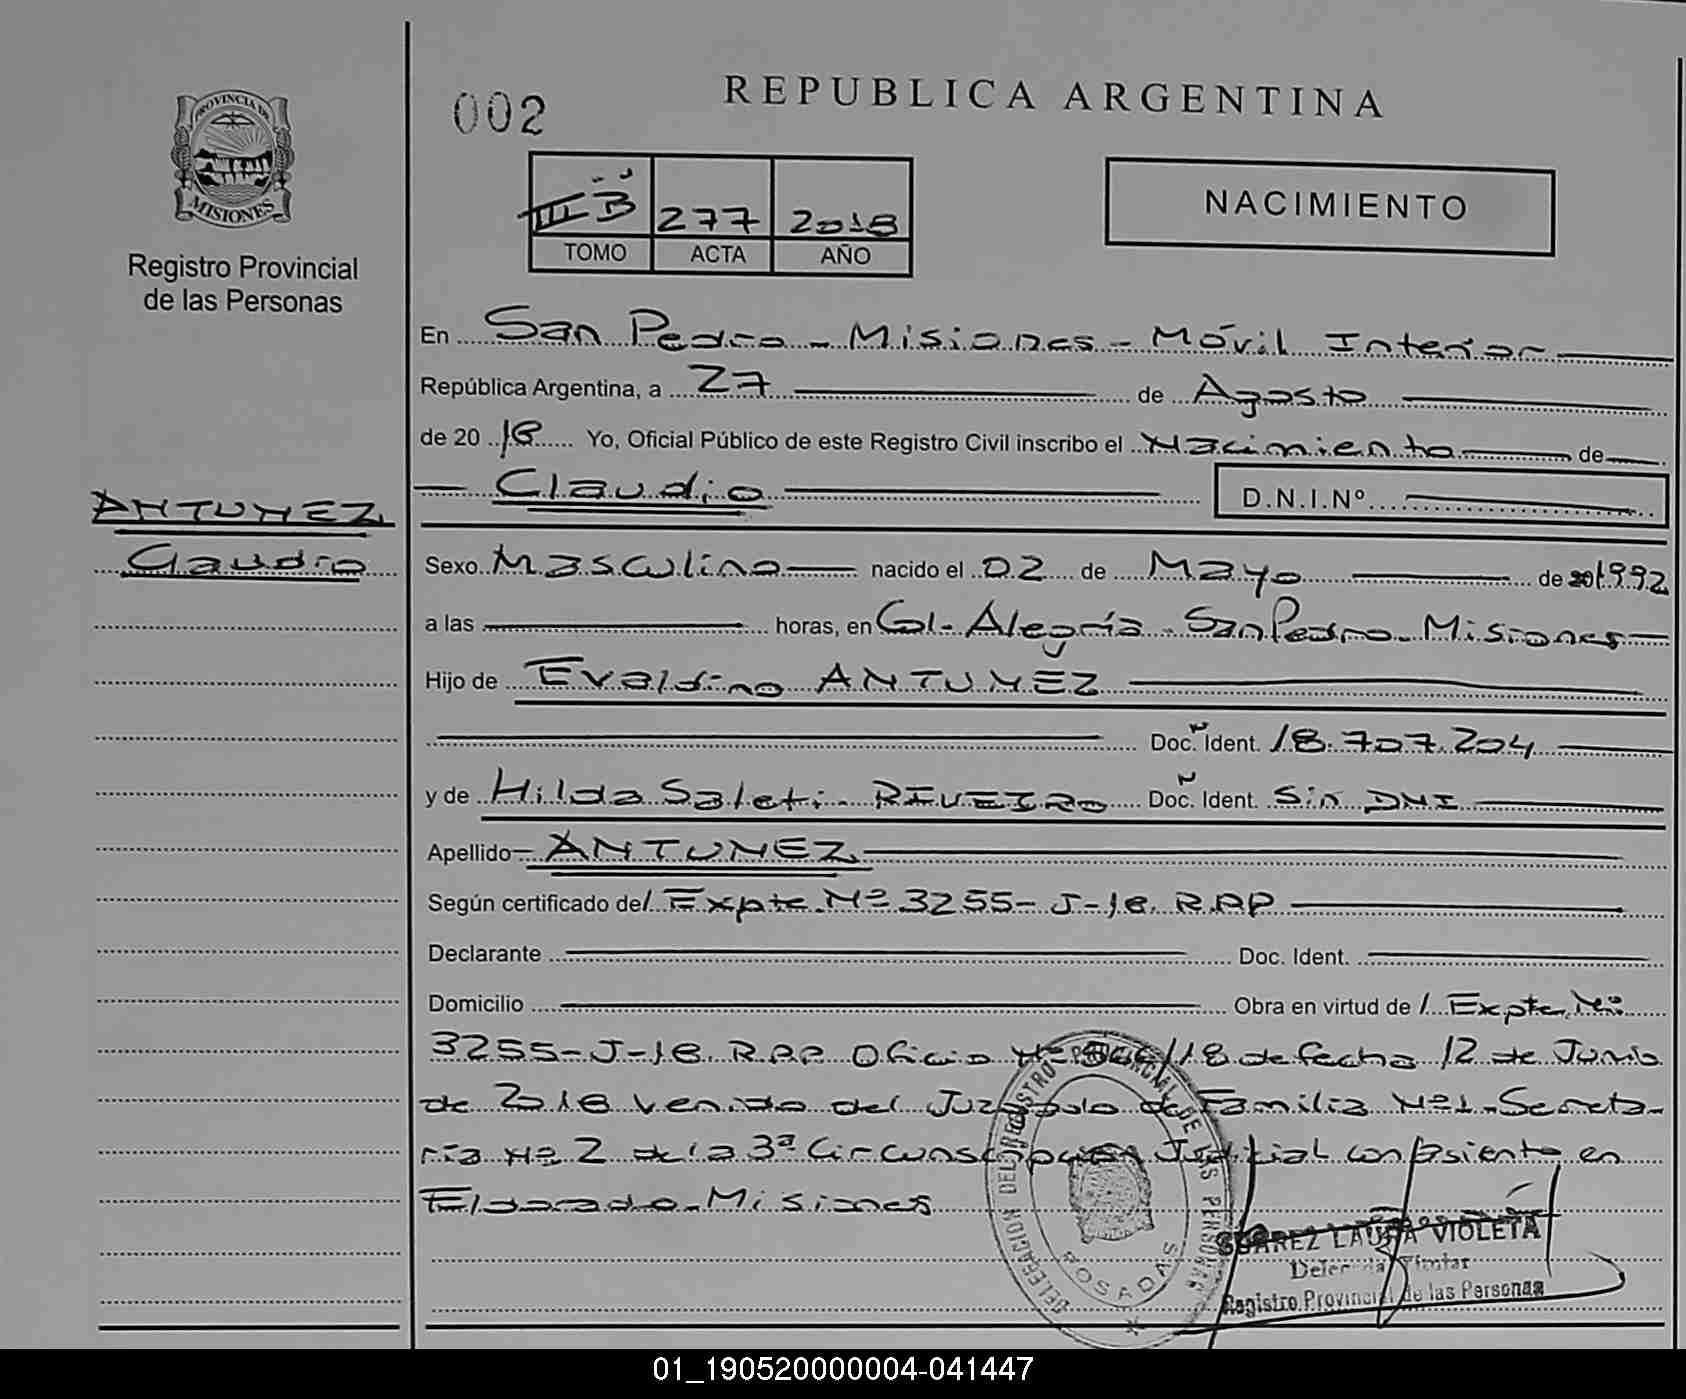 PROVINCIA DE
MISIONES
Registro Provincial
de las Personas
ANTUNEZ
Claudio
002
REPUBLICA ARGENTINA
III B 277 2018
TOMO ACTA AÑO
NACIMIENTO
En San Pedro - Misiones - Móvil Interior
República Argentina, a 27 de Agosto
de 20 18 Yo, Oficial Público de este Registro Civil inscribo el Nacimiento de
Claudio D.N.I.Nº
Sexo Masculino nacido el 02 de Mayo de 1992
a las horas, en Col. Alegría - San Pedro - Misiones
Hijo de Evaldino ANTUNEZ
Doc. Ident. 18.707.204
y de Hilda Saleti - RIVEIRO Doc. Ident. Sin DNI
Apellido ANTUNEZ
Según certificado de/ Expte Nº 3255-J-18. R.P.P
Declarante Doc. Ident.
Domicilio Obra en virtud de / Expte Nº
3255-J-18. R.P.P. Oficio Nº /18 de fecha 12 de Junio
de 2018 venido del Juzgado de Familia Nº 1 - Secreta-
ría Nº 2 de la 3ª Circunscripción Judicial con asiento en
Eldorado - Misiones
DELEGACION DEL REGISTRO PROVINCIAL DE LAS PERSONAS
POSADAS
SUAREZ LAURA VIOLETA
Delegada Titular
Registro Provincial de las Personas
01_190520000004-041447